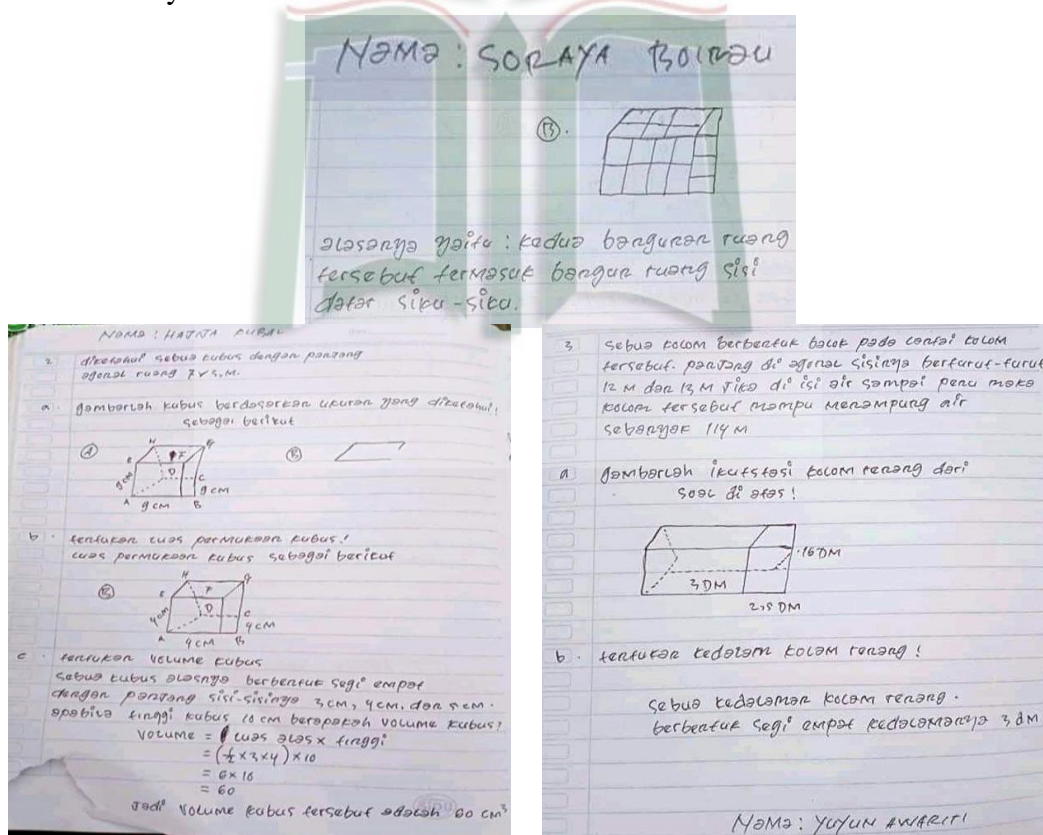 Nama : SORAYA BOIRAU
B.
alasanya yaitu : kedua bangunan ruang
tersebut termasuk bangun ruang sisi
datar siku-siku.
Nama : HAJNA RUBAL
2. diketahui sebua kubus dengan panjang
agonal ruang 7√3, M.
a. gambarlah kubus berdasarkan ukuran yang diketahui!
sebagai berikut
A B
H G
E F
D C
9 cm 9 cm
A B
9 cm
b. tentukan luas permukaan kubus!
luas permukaan kubus sebagai berikut
B
H G
E F
D C
4cm 4cm
A B
4cm
c. tentukan volume kubus
sebua kubus alasnya berbentuk segi empat
dengan panjang sisi-sisinya 3 cm, 4 cm, dan 5 cm.
apabila tinggi kubus 10 cm berapakah volume kubus?
volume = luas alas x tinggi
= (½ x 3 x 4) x 10
= 6 x 10
= 60
Jadi volume kubus tersebut adalah 60 cm³
3 sebua kolom berbentuk balok pada lantai kolom
tersebut. panjang di agonal sisinya berturut-turut
12 M dan 13 M Jika di isi air sampai penu maka
kolom tersebut mampu menampung air
sebanyak 114 M
a gambarlah ikutstasi kolom renang dari
soal di atas!
16 DM
3 DM
2,5 DM
b. tentukan kedalam kolam renang!
sebua kedalaman kolam renang.
berbentuk segi empat kedalamanya 3 dm
Nama : YUYUN AWARITI